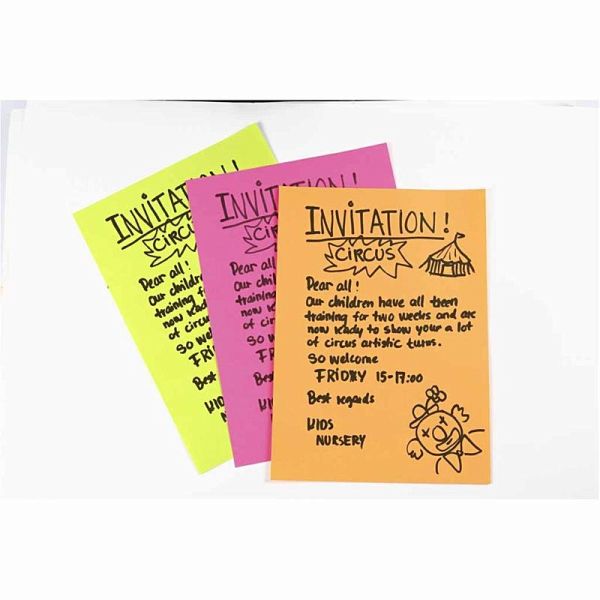 INVITATION!
CIRCUS
Dear all!
Our children
training for
now ready
of circus
So we
FRID
Best
KIDS
NURSERY
INVITATION!
CIR
Dear all!
Our child
training
now ready
of cir
So we
FRI
Best
KIDS
NURS
INVITATION!
CIRCUS
Dear all!
Our children have all been
training for two weeks and are
now ready to show your a lot
of circus artistic turns.
So welcome
FRIDAY 15-17:00
Best regards
KIDS
NURSERY